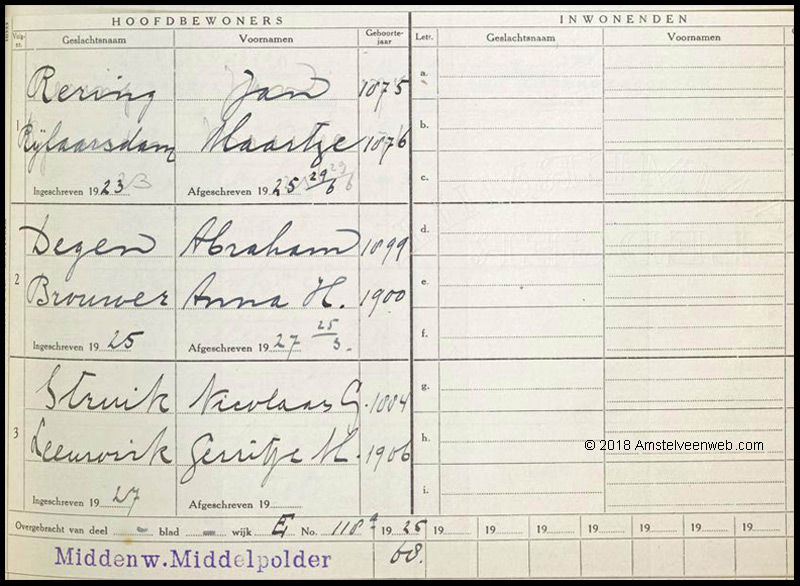 HOOFDBEWONERS INWONENDEN
Volg-nr. Geslachtsnaam Voornamen Geboorte-jaar Lett. Geslachtsnaam Voornamen
a.
Rering Jan 1875
1
b.
Rijlaarsdam Maartje 1876
c.
Ingeschreven 1923 Afgeschreven 1925 29/6
d.
Degen Abraham 1899
2
e.
Brouwer Anna H. 1900
f.
Ingeschreven 1925 Afgeschreven 1927 25/3.
g.
Struik Nicolaas G. 1884
3
h.
Leeuwrik Gerritje M. 1906
© 2018 Amstelveenweb.com
i.
Ingeschreven 1927 Afgeschreven 19
Overgebracht van deel — blad — wijk E No. 118a 1925 19 19 19 19 19 19
Middenw. Middelpolder 68.